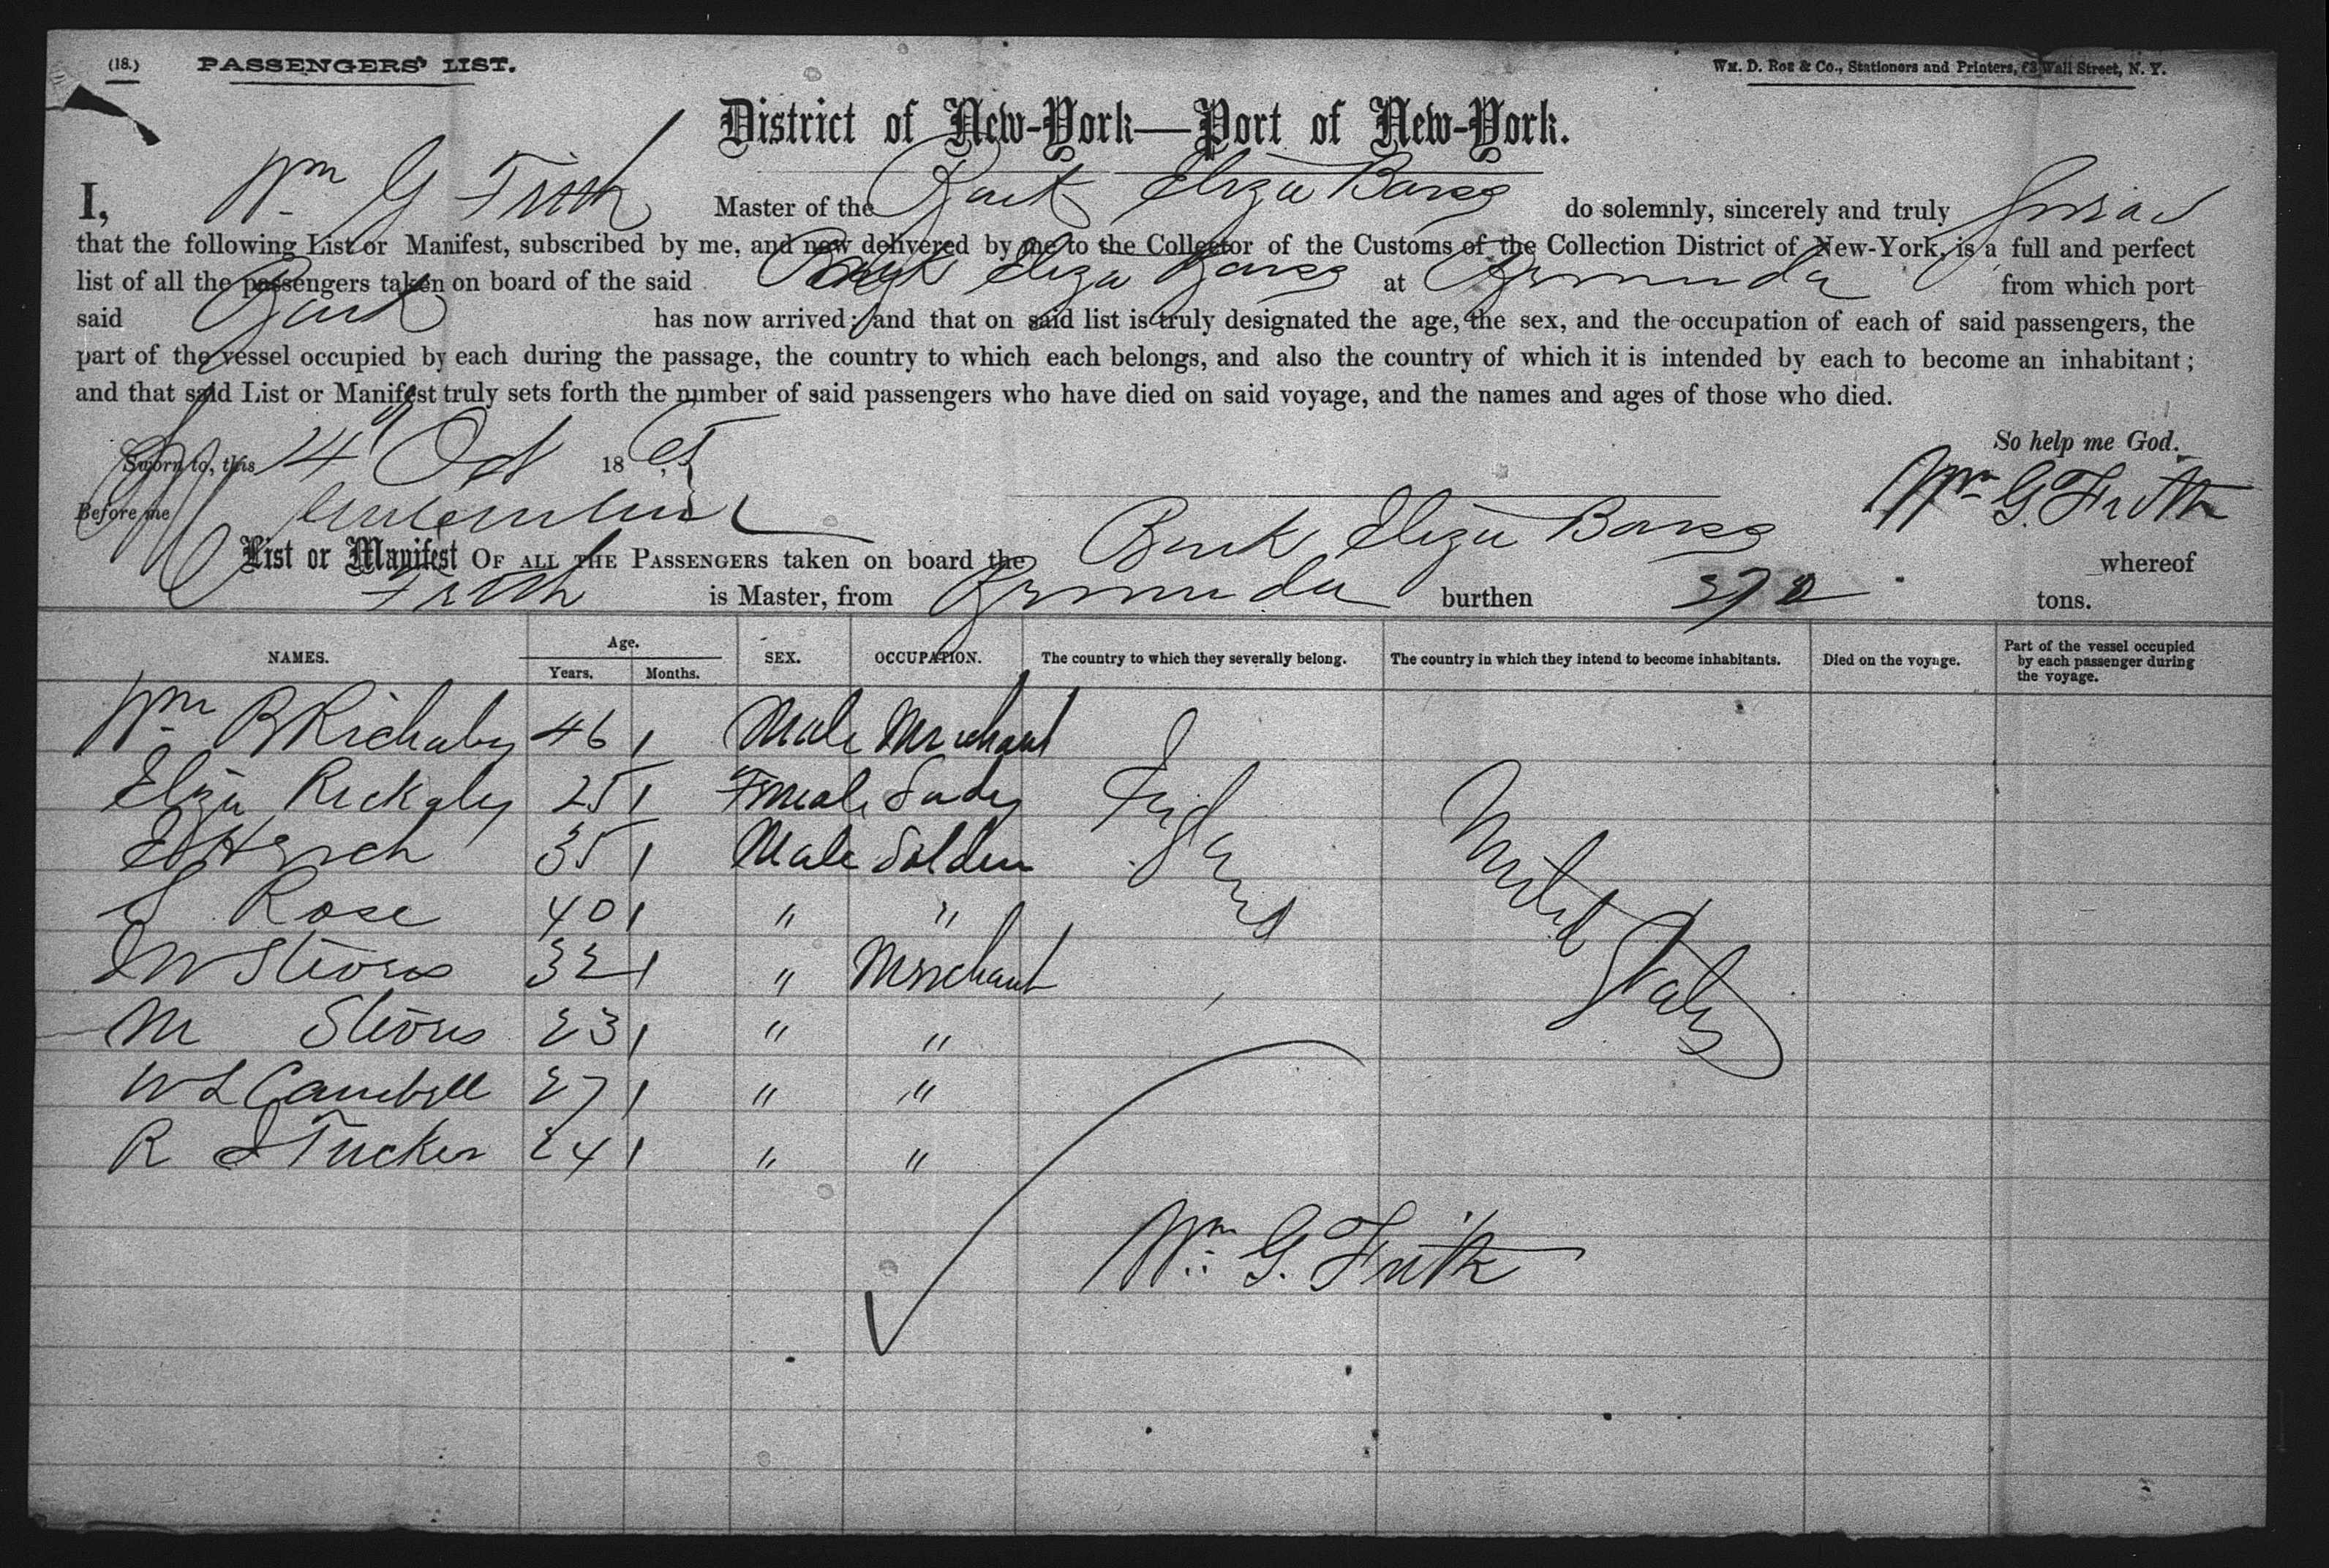 (18.) PASSENGERS' LIST. Wm. D. Roe & Co., Stationers and Printers, 63 Wall Street, N. Y.
District of New-York—Port of New-York.
I, Wm G Frith Master of the Bark Eliza Barss do solemnly, sincerely and truly swear
that the following List or Manifest, subscribed by me, and now delivered by me to the Collector of the Customs of the Collection District of New-York, is a full and perfect
list of all the passengers taken on board of the said Bark Eliza Barss at Bermuda from which port
said Bark has now arrived; and that on said list is truly designated the age, the sex, and the occupation of each of said passengers, the
part of the vessel occupied by each during the passage, the country to which each belongs, and also the country of which it is intended by each to become an inhabitant;
and that said List or Manifest truly sets forth the number of said passengers who have died on said voyage, and the names and ages of those who died.
So help me God.
Sworn to, this 14 Oct 1865
Wm G. Frith
Before me
List or Manifest OF ALL THE PASSENGERS taken on board the Bark Eliza Barss whereof
Frith is Master, from Bermuda burthen 372 tons.
NAMES. Age. Years. Months. SEX. OCCUPATION. The country to which they severally belong. The country in which they intend to become inhabitants. Died on the voyage. Part of the vessel occupied by each passenger during the voyage.
Wm B Richaby 46 Male Merchant
Eliza Rickaby 25 Female Lady
35 Male Soldier
S Rose 40 " "
32 " Merchant
M 23 " "
W L Cambell 27 " "
R J Tucker 24 " "
England
United States
Wm G. Frith